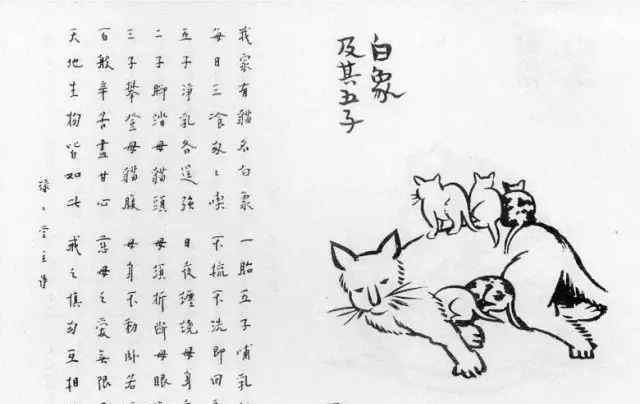 白象
及其五子
我家有貓名白象 一胎五子哺乳
每日三飡匆〻喫 不梳不洗即回
五子淨乳各逞強 日夜纏繞母身
二子腳踏母貓頭 母鬚折斷母眼
三子攀登母貓腹 母身不動臥若
百般辛苦盡甘心 慈母之愛無限
天地生物皆如此 戒之慎勿互相
緣〻堂主